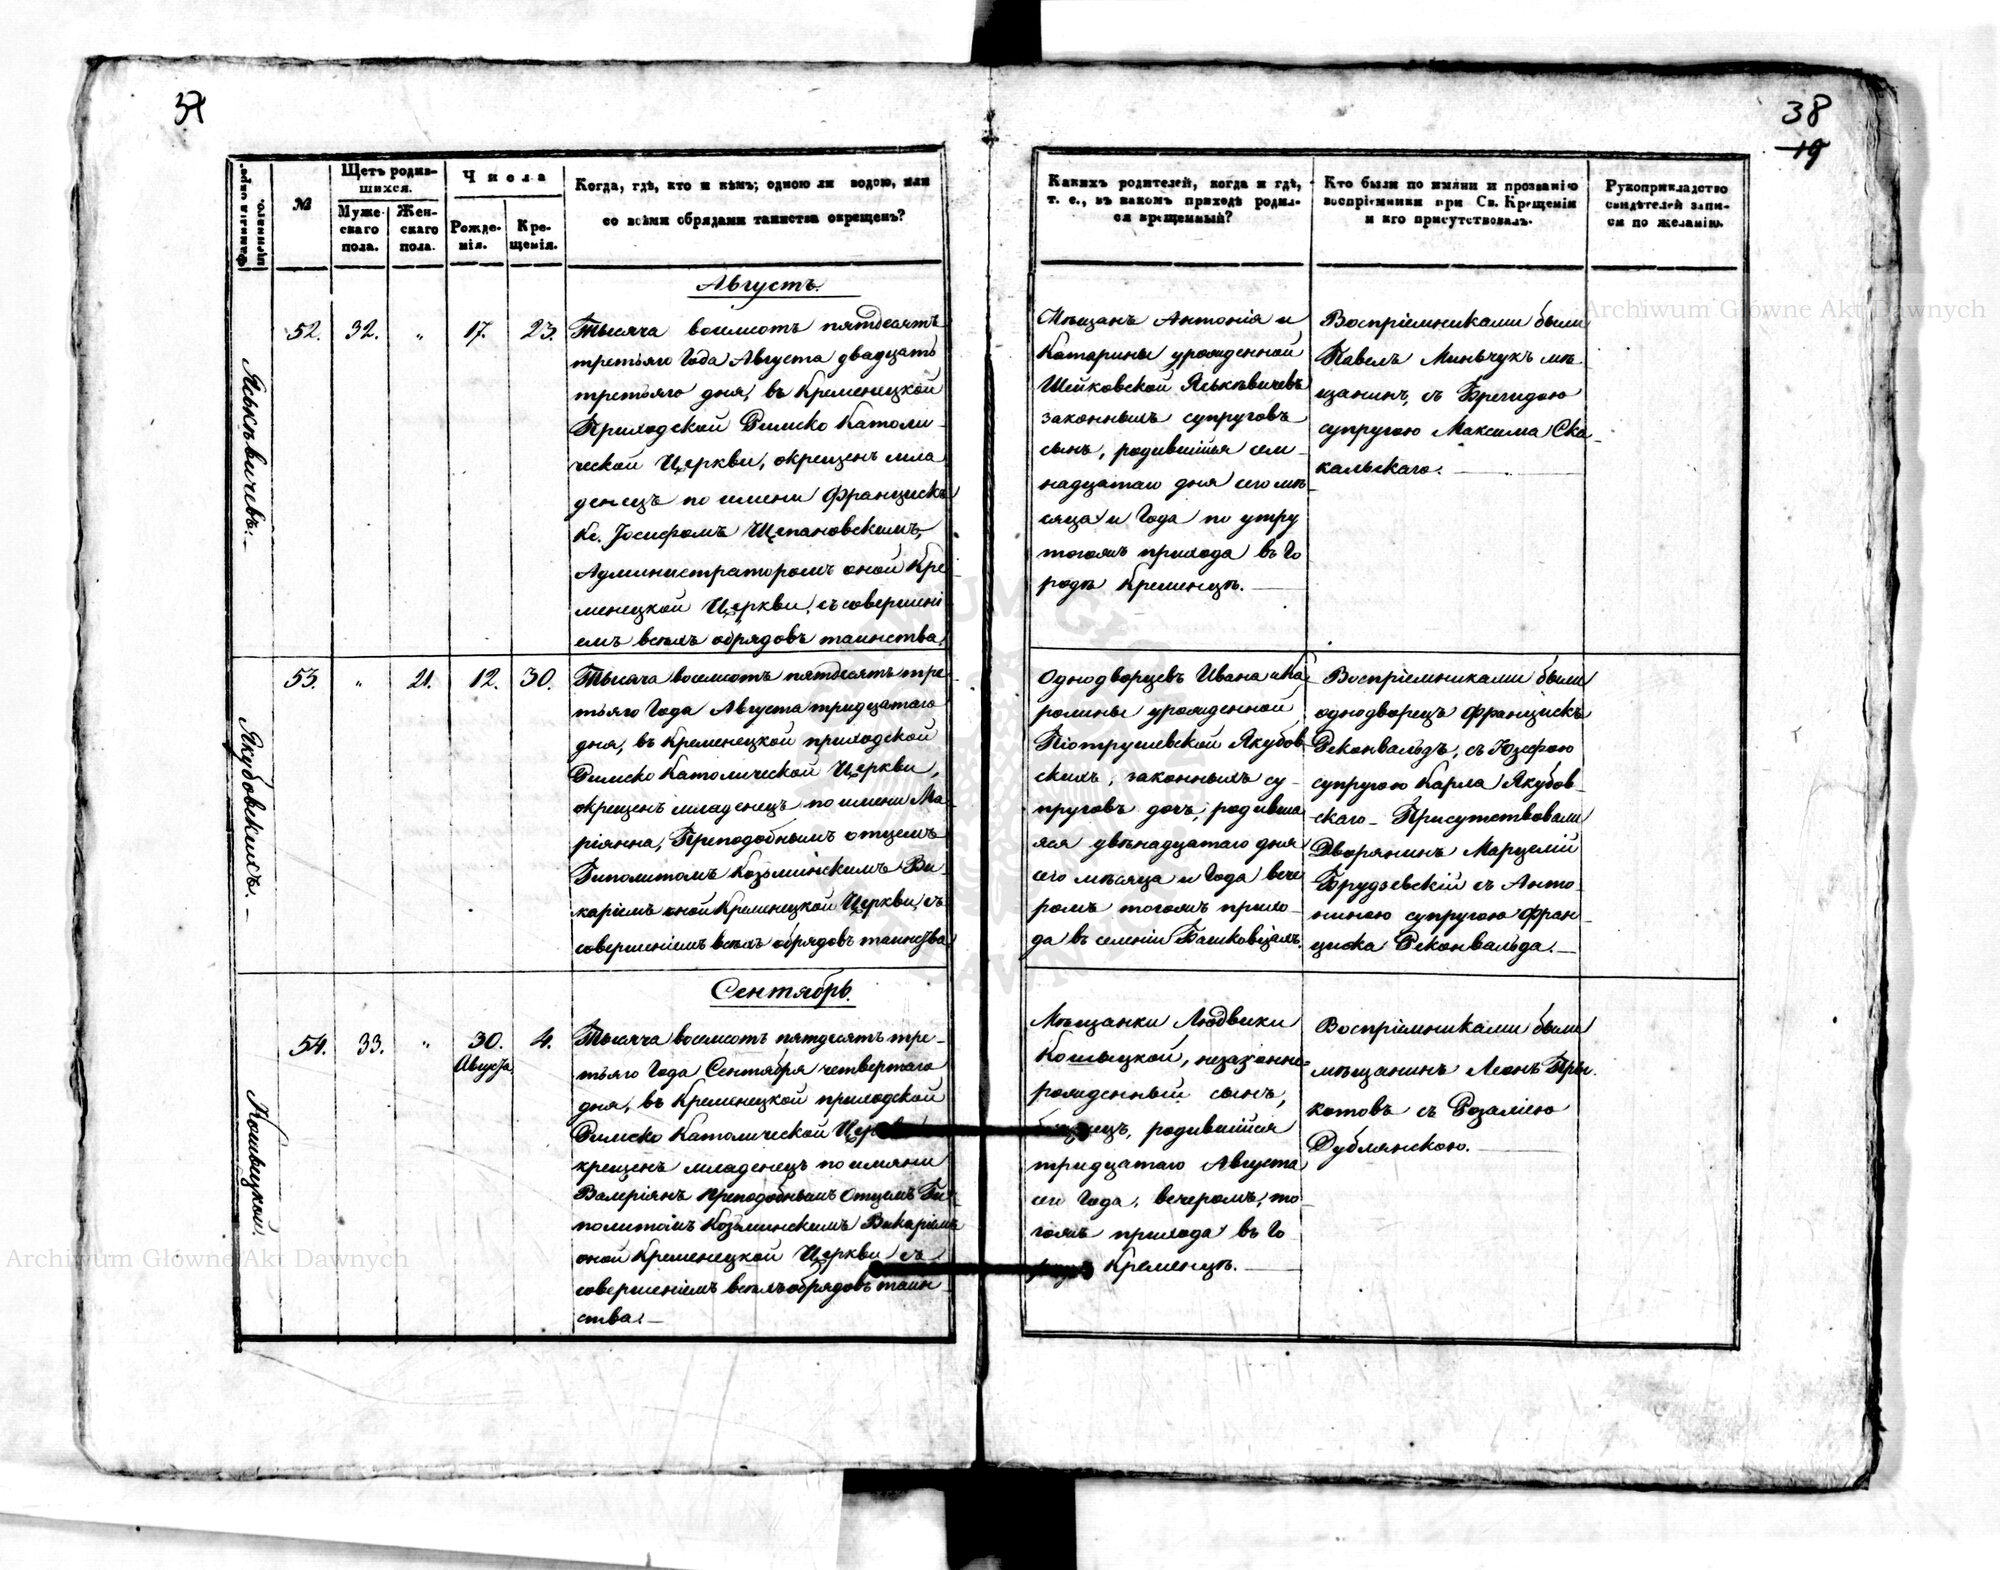 37
38
19
Фамилія опре-
дѣленнаго.
№
Щетъ родив-
шихся.
Муже-
скаго
пола.
Жен-
скаго
пола.
Числа
Рожде-
нія.
Кре-
щенія.
Когда, гдѣ, кто и кѣмъ; одною ли водою, или
со всѣми обрядами таинства окрещенъ?
Августъ.
Яськѣвичевъ.
52.
32.
"
17.
23.
Тысяча восемсотъ пятдесятъ
третьяго Года Августа двадцать
третьяго дня, въ Кременецкой
Приходской Римско Католи-
ческой Церкви, окрещенъ мла
денецъ по имени Францискъ
Кс. Іосифомъ Щепановскимъ,
Администраторомъ оной Кре
менецкой Церкви, съ совершені
емъ всѣхъ обрядовъ таинства.
Якубовскихъ.
53.
"
21.
12.
30.
Тысяча восемсотъ пятдесятъ тре
тьяго Года Августа тридцатаго
дня, въ Кременецкой приходской
Римско Католической Церкви,
окрещенъ младенецъ по имени Ма-
ріянна, Преподобнымъ отцемъ
Гиполитомъ Козьминскимъ Ви-
каріемъ оной Кременецкой Церкви, съ
совершеніемъ всѣхъ обрядовъ таинства
Сентябрь.
54.
33.
"
30.
Августа
4.
Тысяча восемсотъ пятдесятъ тре-
тьяго Года Сентября четвертаго
дня, въ Кременецкой приходской
Римско Католической
крещенъ младенецъ по имяни
Валеріянъ Преподобнымъ Отцемъ Ги-
политомъ Козьминскимъ Викаріемъ
оной Кременецкой Церкви съ
совершеніемъ всѣхъ обрядовъ таин
ства.
Какихъ родителей, когда и гдѣ,
т. е., въ какомъ приходѣ родил-
ся крещенный?
Кто были по имяни и прозванію
воспріемники при Св. Крещеніи
и кто присутствовалъ.
Рукоприкладство
свидѣтелей запи-
си по желанію.
Мѣщанъ Антонія и
Катарины урожденной
Шейковской Яськѣвичевъ
законныхъ супруговъ
сынъ, родившійся сем-
надцатаго дня сего мѣ
сяца и Года по утру
тогожъ прихода въ Го
родѣ Кременцѣ.
Воспріемниками были
Павелъ Миньчукъ мѣ-
щанинъ, съ Бригидою
супругою Максима Ска-
кальскаго.
Однодворцевъ Ивана и Ка
ролины урожденной
Піотрушевской Якубов
скихъ, законныхъ су-
пруговъ дочь, родивша
яся двѣнадцатаго дня
сего мѣсяца и Года вече
ромъ тогожъ прихо-
да въ селеніи Башковцахъ.
Воспріемниками были
однодворецъ Францискъ
Реконвальдъ, съ Юзефою
супругою Карла Якубов-
скаго. Присутствовали
Дворянинъ Марцелій
Брудзевскій съ Анто-
ниною супругою Фран-
циска Реконвальда.
Мѣщанки Людвики
незаконно-
рожденный сынъ,
родившійся
тридцатаго Августа
сего Года, вечеромъ, то
гожъ прихода въ Го
Кременцѣ.
Воспріемниками были
мѣщанинъ Леонъ
съ Розаліею
Дублянскою.
Archiwum Główne Akt Dawnych
Archiwum Główne Akt Dawnych